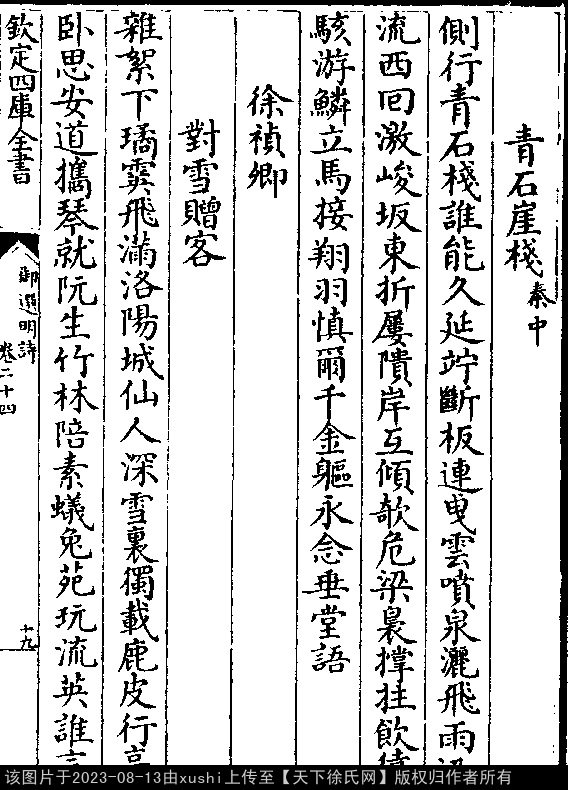 青石崖棧秦中
側行青石棧誰能久延竚斷板連曳雲噴泉灑飛雨
流西回激峻坂東折屢隤岸互傾欹危梁裊撑拄飲
駭游鱗立馬接翔羽慎爾千金軀永念垂堂語
徐禎卿
對雪贈客
雜絮下璚霙飛滿洛陽城仙人深雪裏獨載鹿皮行
卧思安道攜琴就阮生竹林陪素蟻兔苑玩流英誰言
欽定四庫全書
御選明詩
卷二十四
十九
该图片于2023-08-13由xushi上传至【天下徐氏网】版权归作者所有